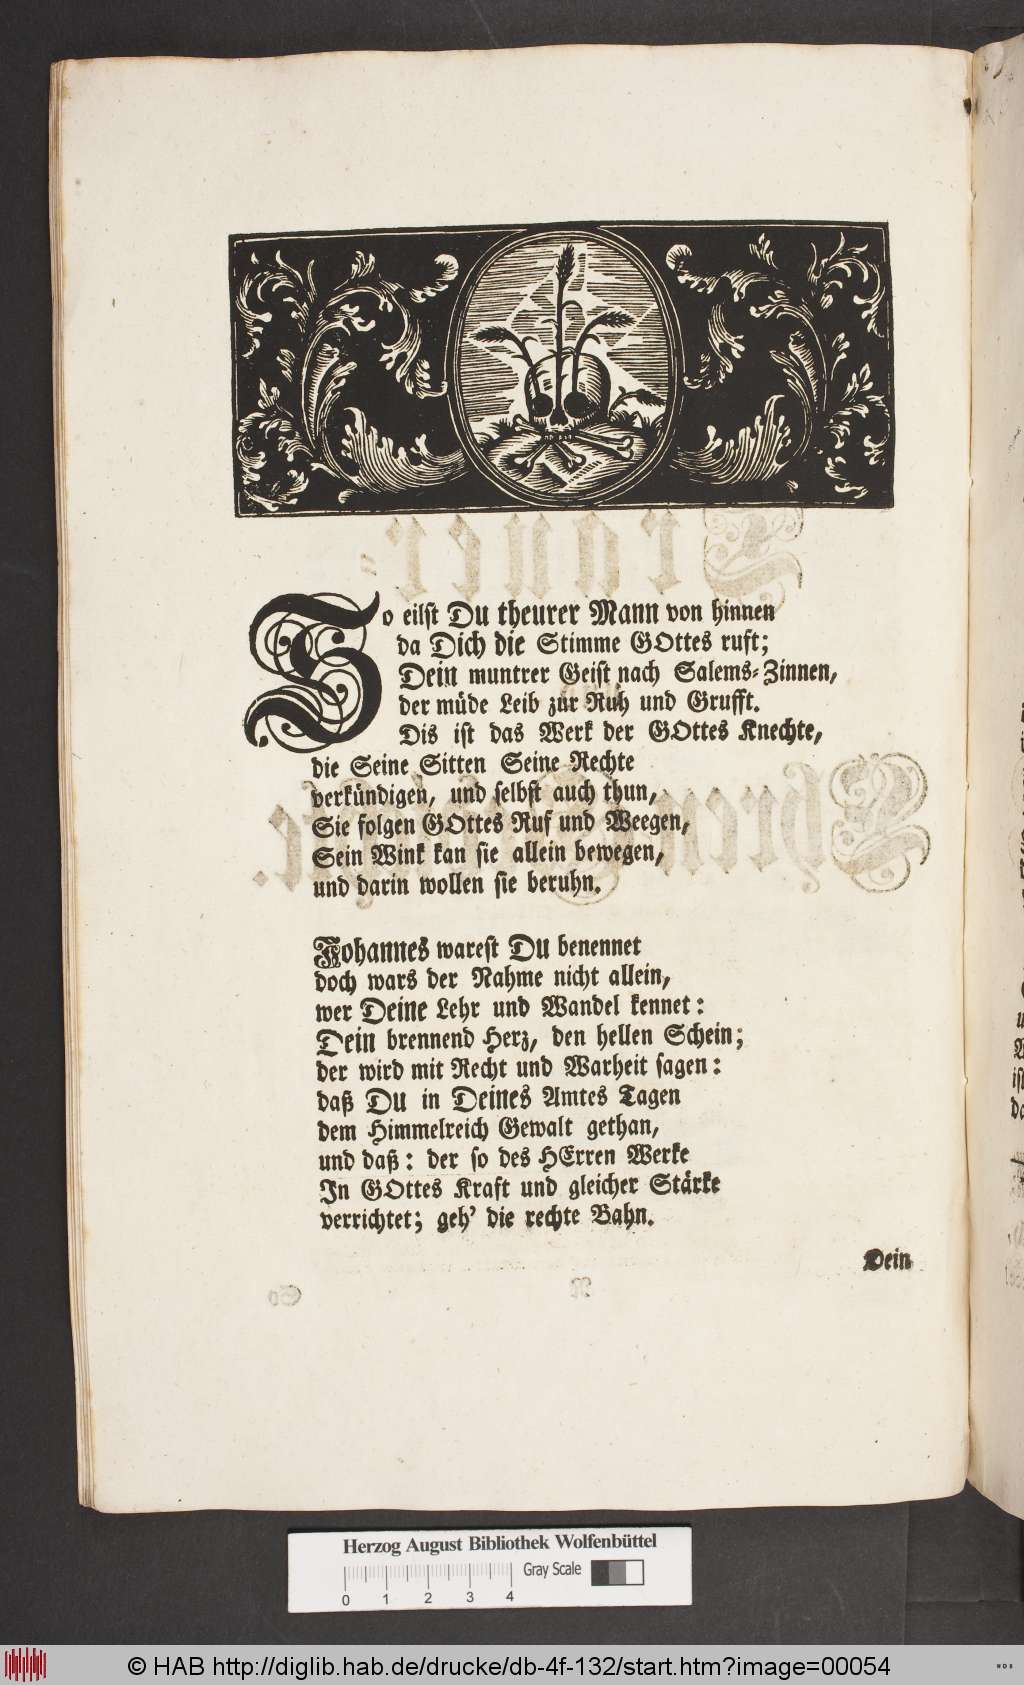 So eilst Du theurer Mann von hinnen
da Dich die Stimme GOttes ruft;
Dein muntrer Geist nach Salems-Zinnen,
der müde Leib zur Ruh und Grufft.
Dis ist das Werk der GOttes Knechte,
die Seine Sitten Seine Rechte
verkündigen, und selbst auch thun,
Sie folgen GOttes Ruf und Weegen,
Sein Wink kan sie allein bewegen,
und darin wollen sie beruhn.
Johannes warest Du benennet
doch wars der Nahme nicht allein,
wer Deine Lehr und Wandel kennet:
Dein brennend Herz, den hellen Schein;
der wird mit Recht und Warheit sagen:
daß Du in Deines Amtes Tagen
dem Himmelreich Gewalt gethan,
und daß: der so des HErren Werke
In GOttes Kraft und gleicher Stärke
verrichtet; geh' die rechte Bahn.
Dein
Herzog August Bibliothek Wolfenbüttel
0 1 2 3 4 Gray Scale
© HAB http://diglib.hab.de/drucke/db-4f-132/start.htm?image=00054